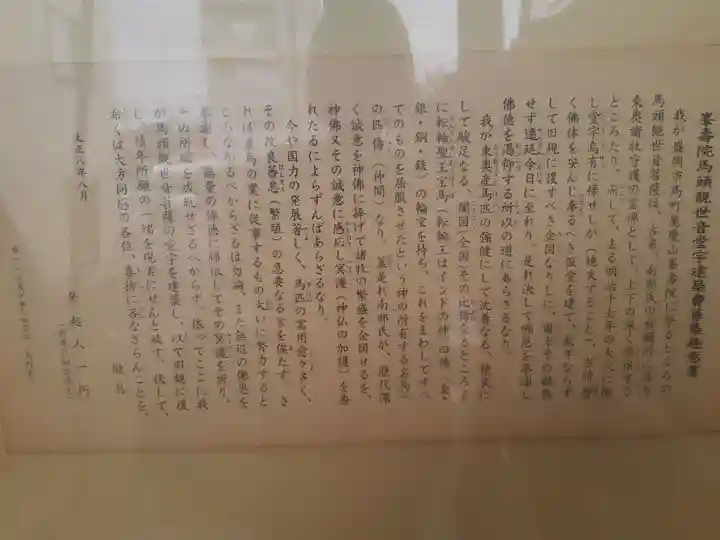 峯壽院馬頭觀世音堂宇建築會募緣趣意書
我が盛岡市馬町峯寿院にまつるところの
馬頭觀世音菩薩は、古来、南部氏の祈願所に係り
東奥諸牧守護の霊佛として、上下の深く帰依する
ところたり、而して、去る明治十七年の大火に際
し堂宇烏有に帰せしが(焼失すること)、
く佛体を安んじ奉るべき仮堂を建て、数年ならず
して旧規に復すべき企図なりしに、
せず遷延今日に至れり、是れ決して
佛徳を渇仰する所以の道にあらざるなり。
我が東奥産馬匹の強健にして沈着なる、
して駿足なる、闔国(全国)その比倫なきところと
に転輪聖王宝馬(転輪王はインドの神 四種(金・
銀・銅・鉄)の輪宝を持ち、これをまわしてすべ
てのものを屈服させたという神の所有する名馬)
の匹儔(仲間)なり。蓋是れ南部氏が、歴代深
く誠意を神佛に捧げて諸牧の繁盛を企図せるを、
神佛又その誠意に感応し冥護(神仏の加護)を垂
れたるによらずんばあらざるなり。
今や国力の発展著しく、馬匹の需用愈々多く、
その改良蕃息(繁殖)の急要なる言を俟たず さ
れば産馬の業に従事するもの大いに努力すると
ころなかるべからざるは勿論、また無辺の佛恩を
奉謝し、無量の佛徳に帰依してその冥護を祈り、
の所願を成就せざるべからず。依ってここに我
が馬頭觀世音菩薩の堂宇を建築し、以て旧観に復
し、積年所願の一端を現実にせんと欲す。
くは大方同感の各位、喜捨に吝なさらんことを、
敬白
大正八年八月
発起人一同